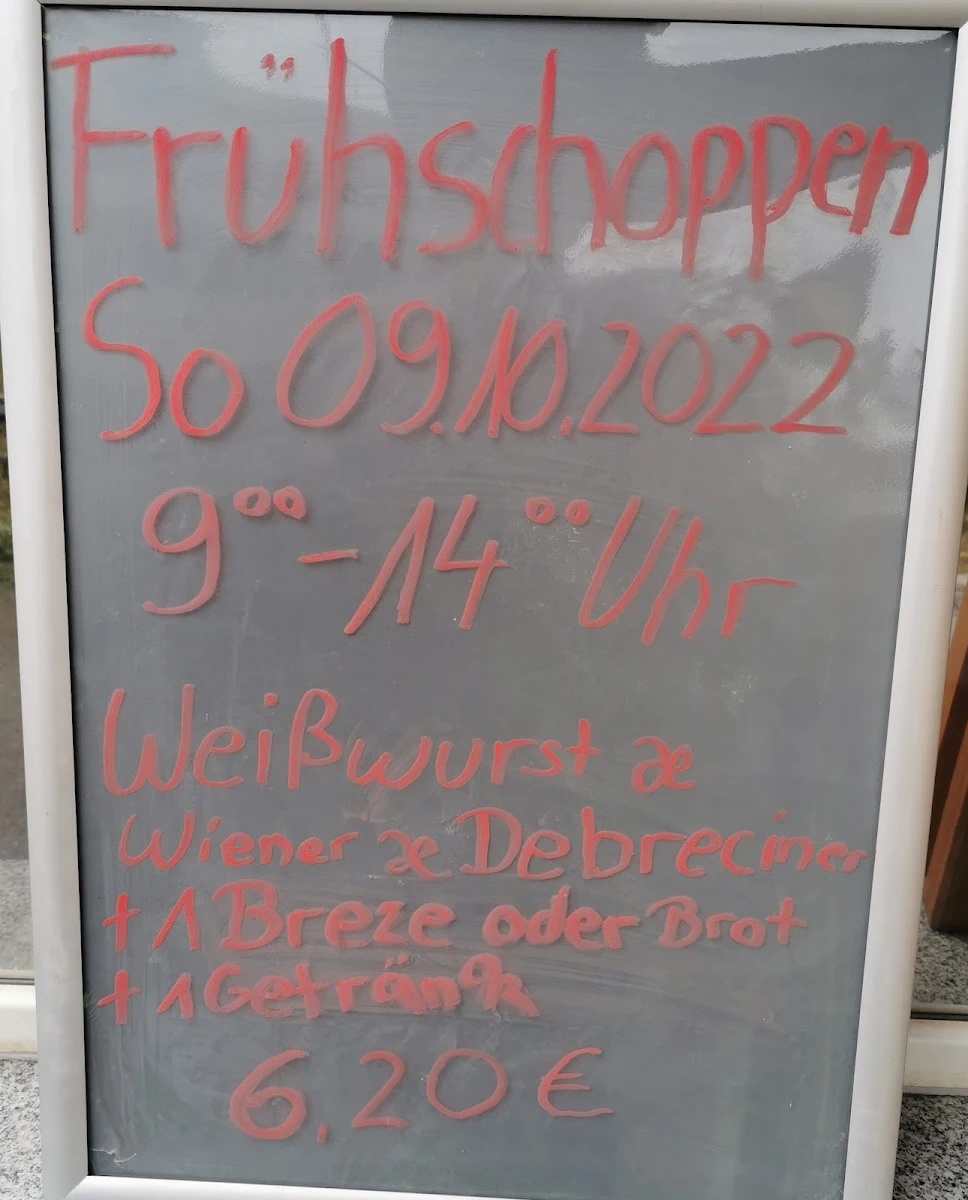 Frühschoppen
So 09.10.2022
9⁰⁰-14⁰⁰ Uhr
Weißwurst æ
Wiener æ Debreciner
+ 1 Breze oder Brot
+ 1 Getränk
6,20 €